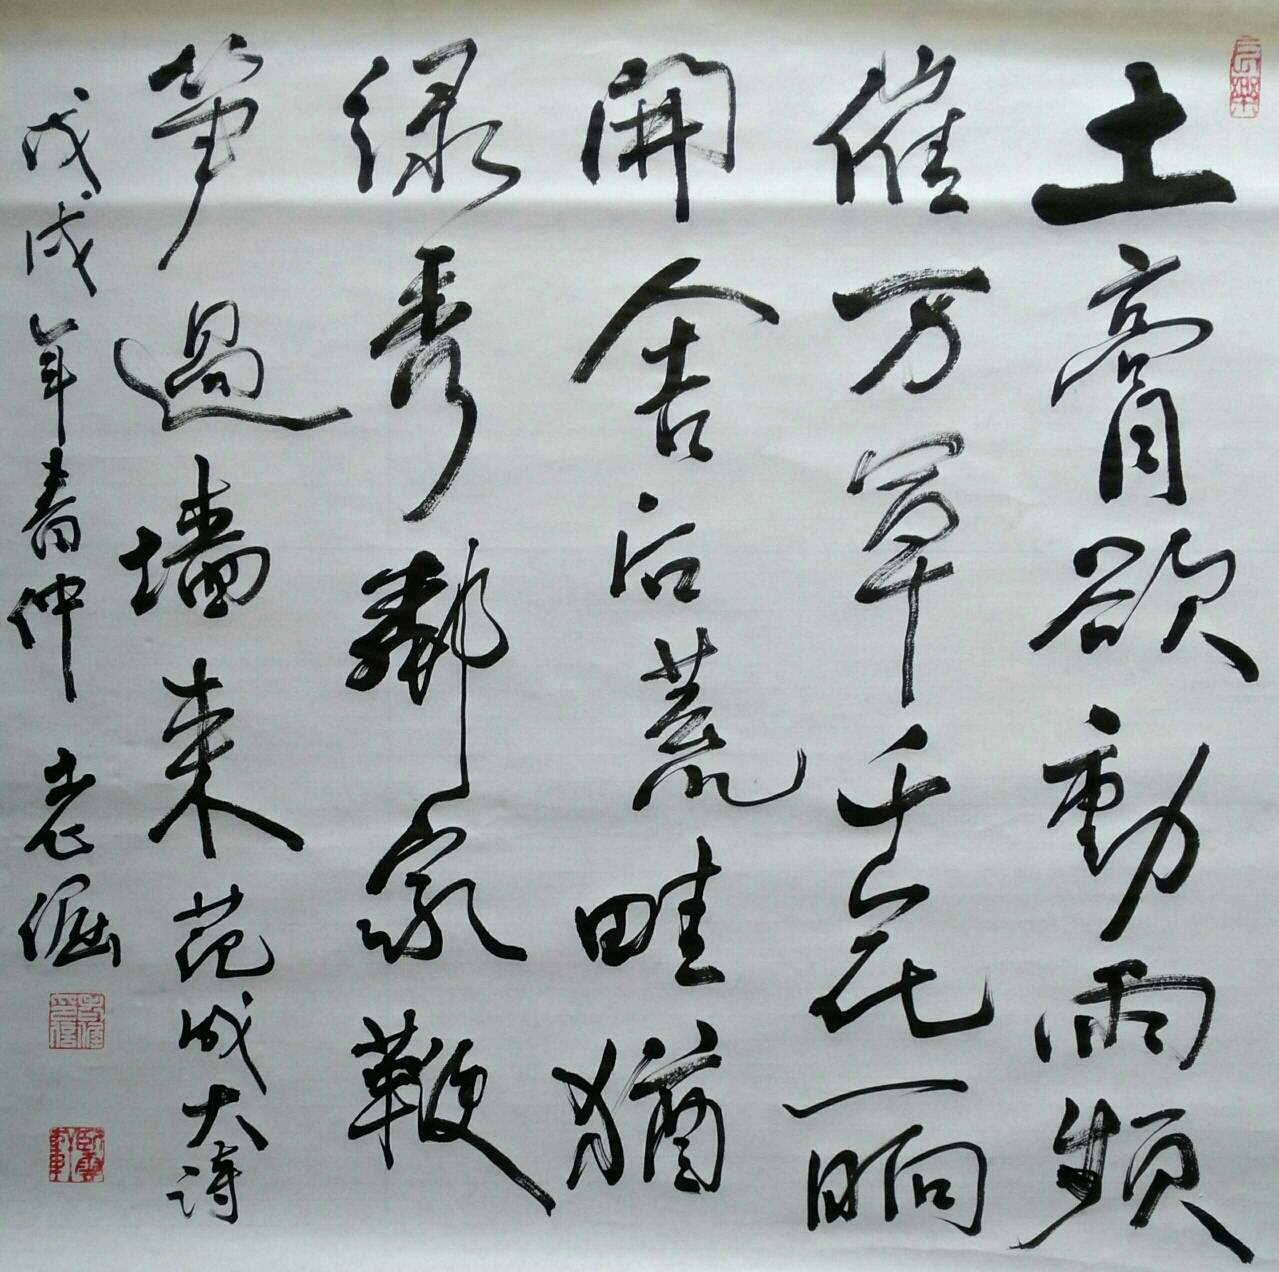 土膏欲動雨頻
催万草千花一晌
開舍后荒畦猶
绿秀鄰家鞭
笋過墙来范成大诗
戊戌年春仲 老倔